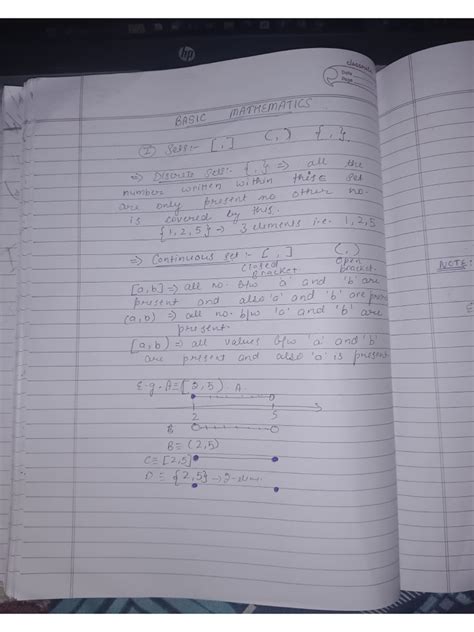 hp
classmate
Date
Page
BASIC MATHEMATICS
(I) Sets:- [ , ] ( , ) { , }
⇒ Discrete Set:- { , } ⇒ all the
number written within this set
are only present no other no.
is covered by this.
{1, 2, 5} → 3 elements i.e. 1, 2, 5
⇒ Continuous set :- [ , ] ( , )
Closed Open
bracket bracket.
NOTE:
[a,b] ⇒ all no. b/w 'a' and 'b' are
present and also 'a' and 'b' are
(a, b) ⇒ all no. b/w 'a' and 'b' are
present.
[a, b) ⇒ all values b/w 'a' and 'b'
are present and also 'a' is present
E.g. A=[2,5) A.
2 5
B
B≡ (2,5)
C≡ [2,5]
D ≡ {2,5} → 2-